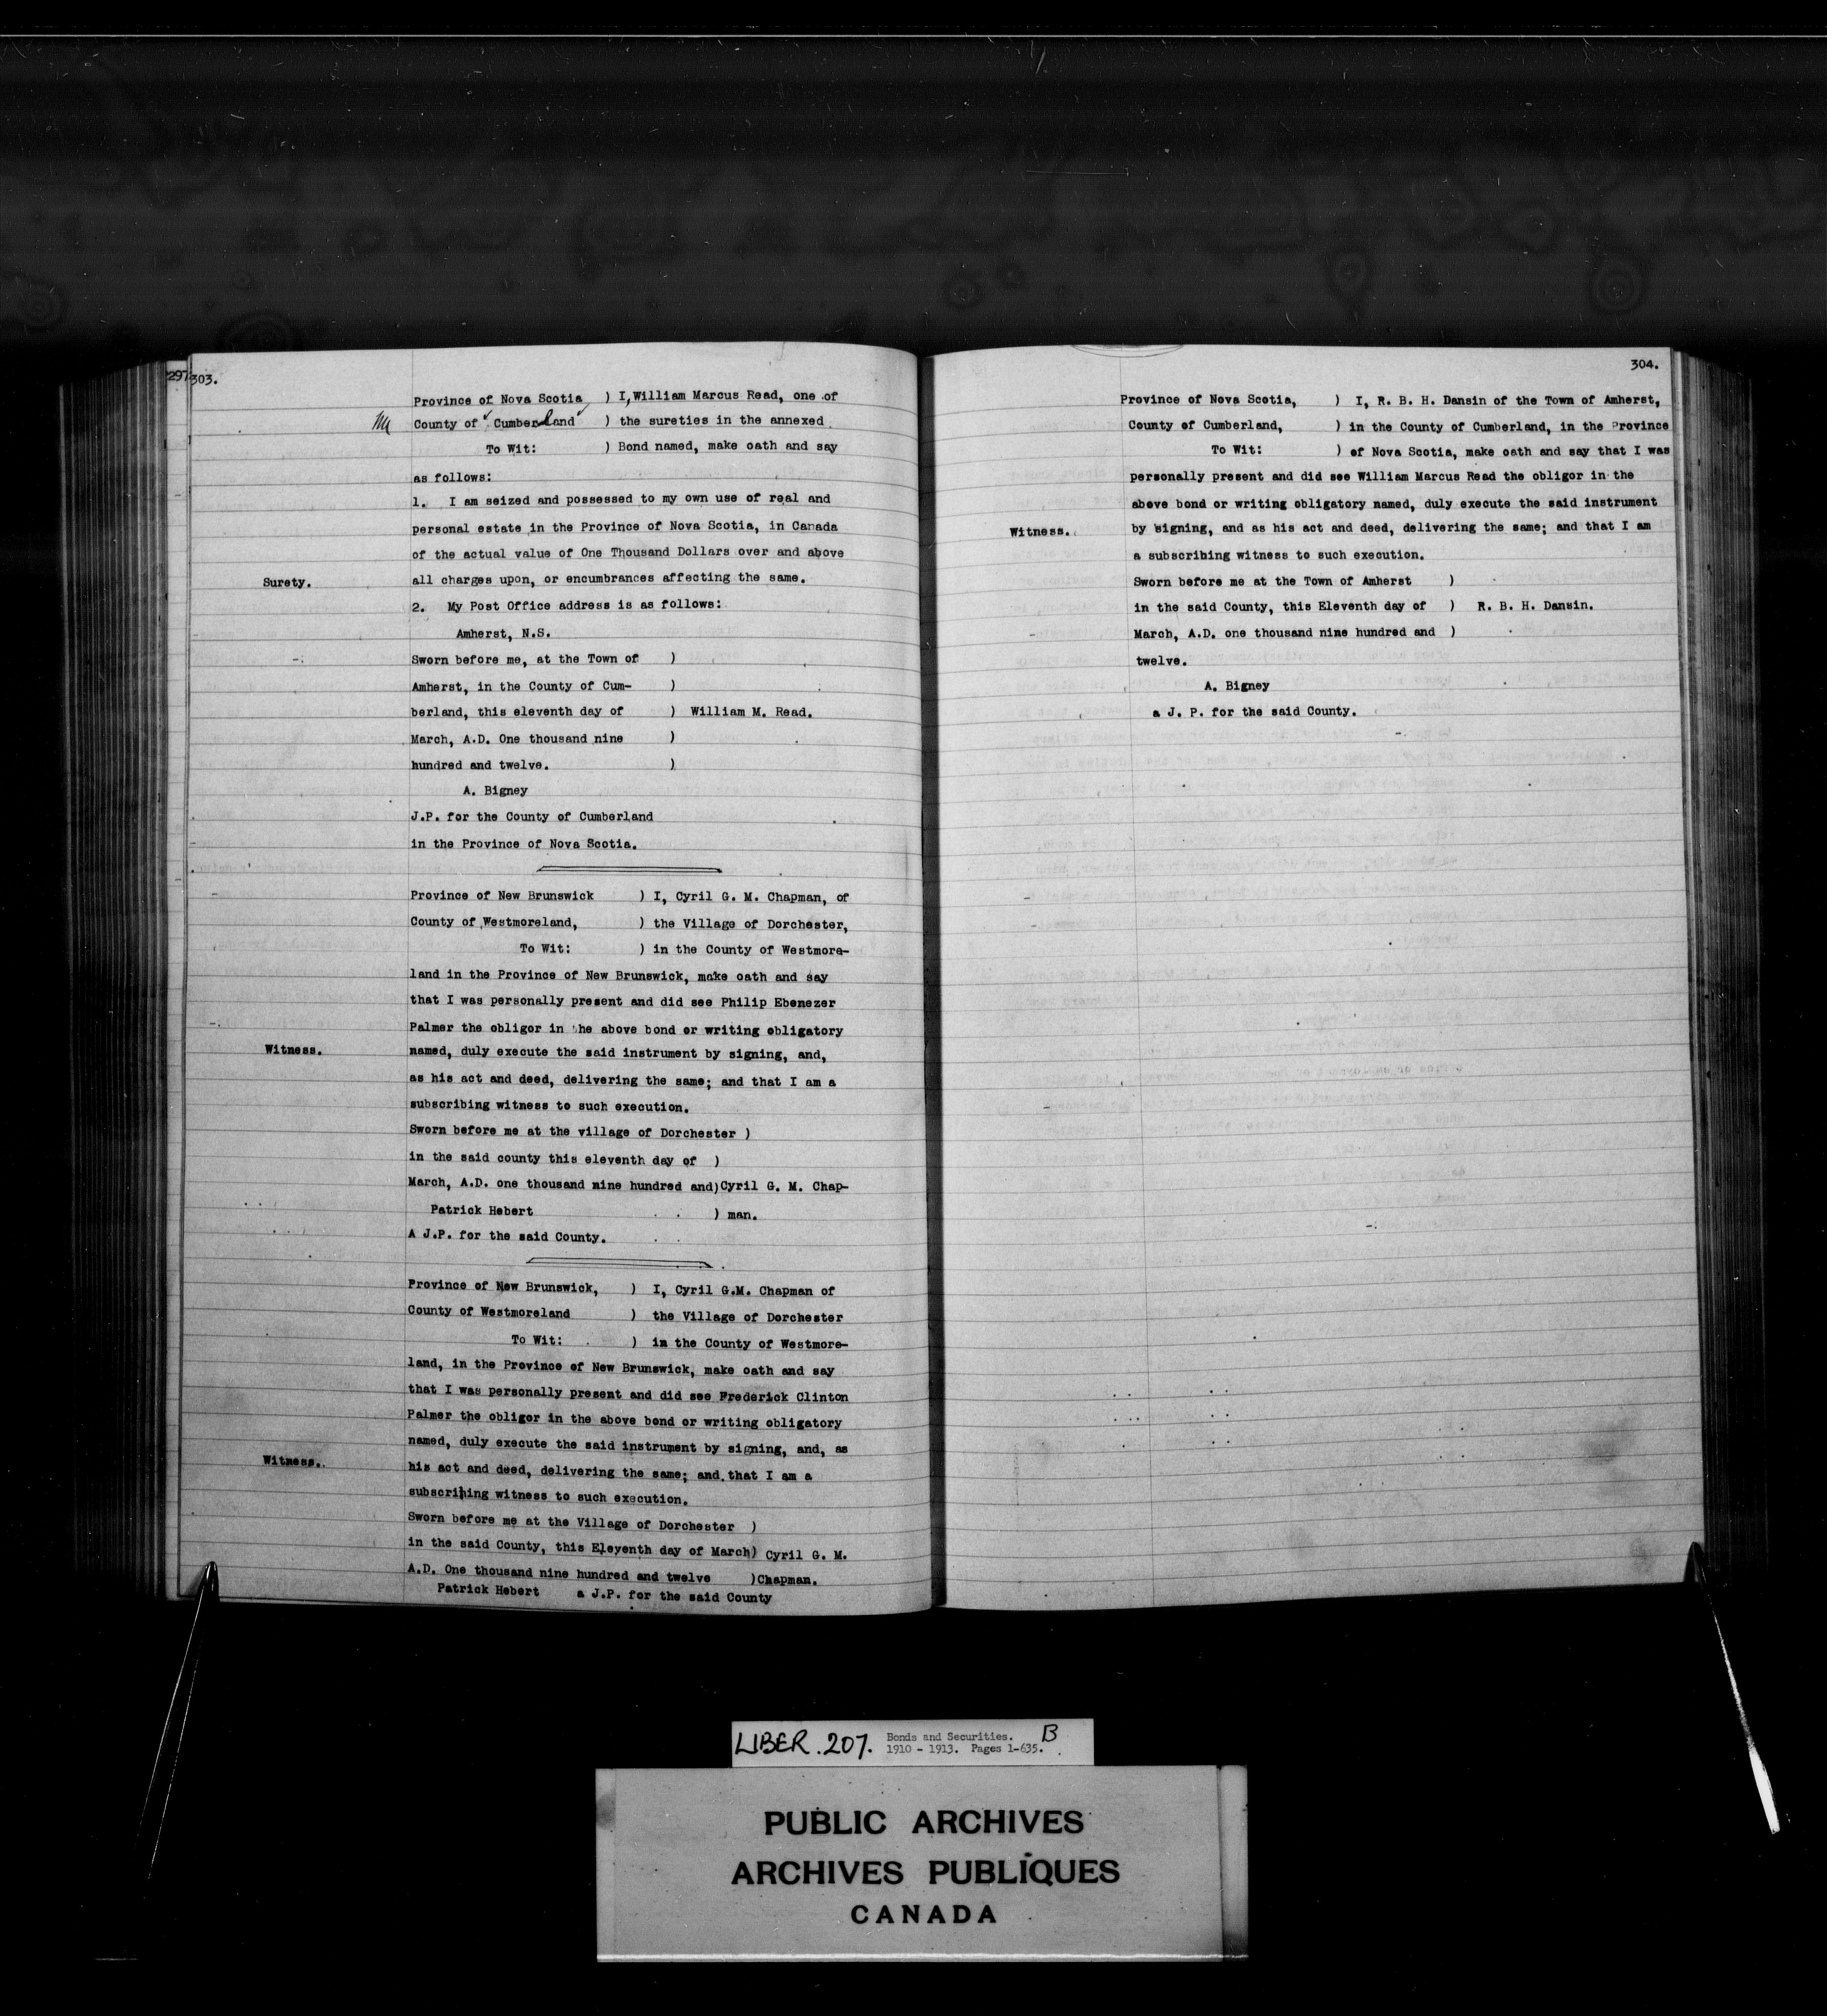 297
303.
Province of Nova Scotia ) I, William Marcus Read, one of
County of Cumberland ) the sureties in the annexed
To Wit: ) Bond named, make oath and say
as follows:
1. I am seized and possessed to my own use of real and
personal estate in the Province of Nova Scotia, in Canada
of the actual value of One Thousand Dollars over and above
Surety. all charges upon, or encumbrances affecting the same.
2. My Post Office address is as follows:
Amherst, N.S.
Sworn before me, at the Town of )
Amherst, in the County of Cum- )
berland, this eleventh day of ) William M. Read.
March, A.D. One thousand nine )
hundred and twelve. )
A. Bigney
J.P. for the County of Cumberland
in the Province of Nova Scotia.
Province of New Brunswick ) I, Cyril G. M. Chapman, of
County of Westmoreland, ) the Village of Dorchester,
To Wit: ) in the County of Westmore-
land in the Province of New Brunswick, make oath and say
that I was personally present and did see Philip Ebenezer
Palmer the obligor in he above bond or writing obligatory
Witness. named, duly execute the said instrument by signing, and,
as his act and deed, delivering the same; and that I am a
subscribing witness to such execution.
Sworn before me at the village of Dorchester )
in the said county this eleventh day of )
March, A.D. one thousand nine hundred and) Cyril G. M. Chap-
Patrick Hebert ) man.
A J.P. for the said County.
Province of New Brunswick, ) I, Cyril G.M. Chapman of
County of Westmoreland ) the Village of Dorchester
To Wit: ) in the County of Westmore-
land, in the Province of New Brunswick, make oath and say
that I was personally present and did see Frederick Clinton
Palmer the obligor in the above bond or writing obligatory
named, duly execute the said instrument by signing, and, as
Witness. his act and deed, delivering the same; and that I am a
subscribing witness to such execution.
Sworn before me at the Village of Dorchester )
in the said County, this Eleventh day of March) Cyril G. M.
A.D. One thousand nine hundred and twelve )Chapman.
Patrick Hebert a J.P. for the said County
304.
Province of Nova Scotia, ) I, R. B. H. Dansin of the Town of Amherst,
County of Cumberland, ) in the County of Cumberland, in the Province
To Wit: ) of Nova Scotia, make oath and say that I was
personally present and did see William Marcus Read the obligor in the
above bond or writing obligatory named, duly execute the said instrument
Witness. by signing, and as his act and deed, delivering the same; and that I am
a subscribing witness to such execution.
Sworn before me at the Town of Amherst )
in the said County, this Eleventh day of ) R. B. H. Dansin.
March, A.D. one thousand nine hundred and )
twelve.
A. Bigney
a J. P. for the said County.
LIBER. 207. Bonds and Securities. B
1910 - 1913. Pages 1-635.
PUBLIC ARCHIVES
ARCHIVES PUBLIQUES
CANADA